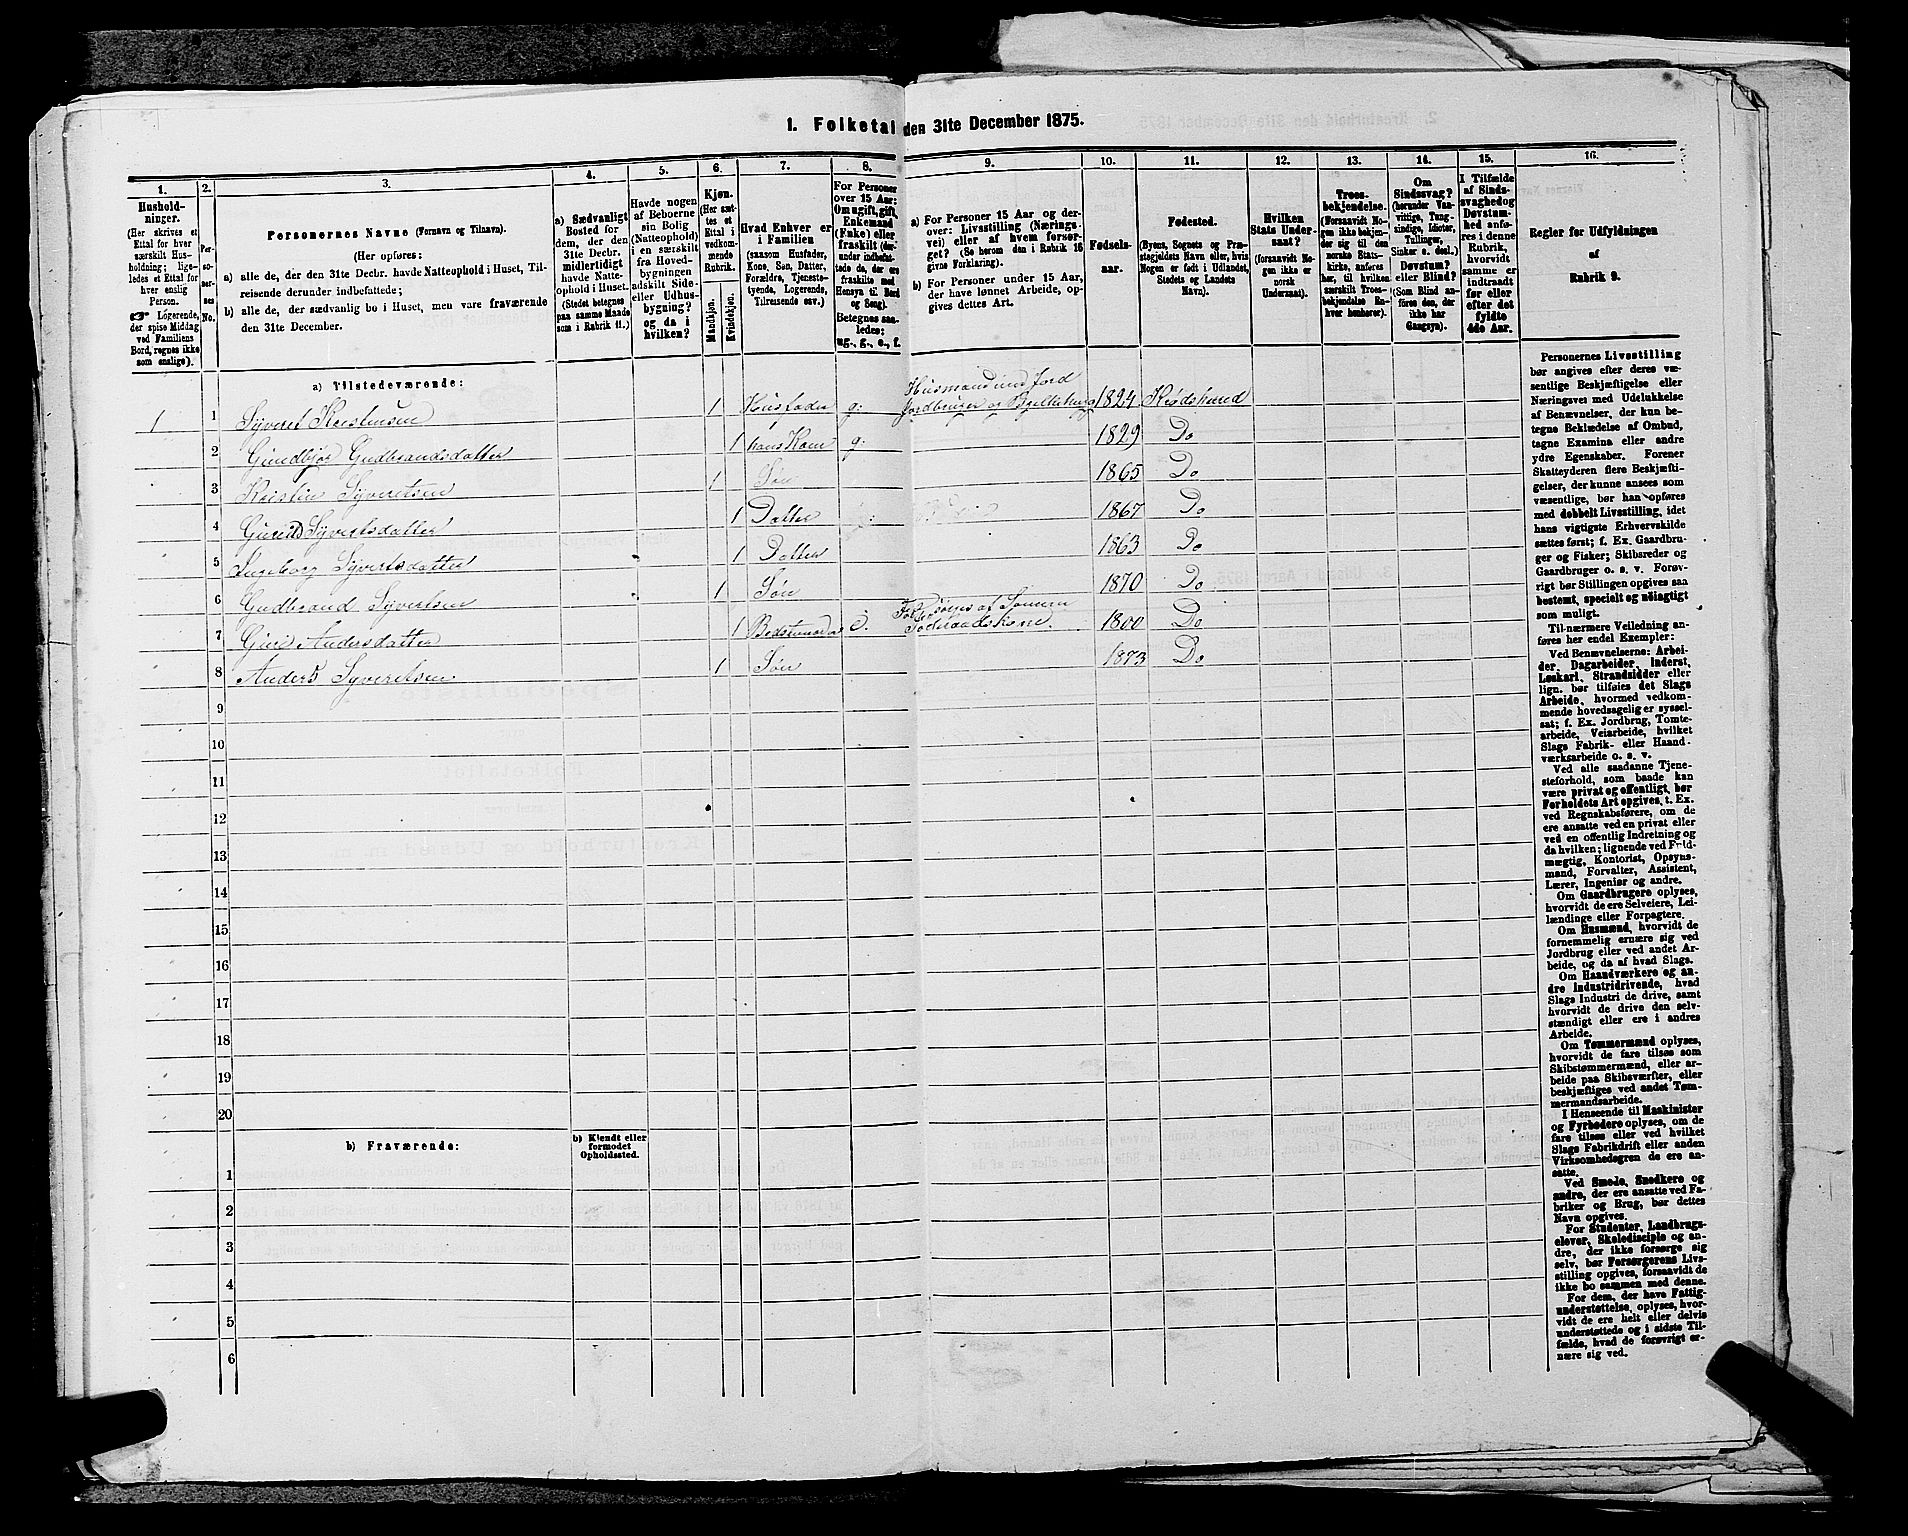 1. Folketal den 31te December 1875.
1.
2.
3.
4.
5.
6.
7.
8.
9.
10.
11.
12.
13.
14.
15.
16.
Hushold-
ninger.
(Her skrives et
Ettal for hver
særskilt Hus-
holdning; lige-
ledes et Ettal for
hver enslig
Person.
☞ Logerende,
der spise Middag
ved Familiens
Bord, regnes ikke
som enslige).
Per-
so-
ner-
nes
No.
Personernes Navne (Fornavn og Tilnavn).
(Her opføres:
a) alle de, der den 31te Decbr. havde Natteophold i Huset, Til-
reisende derunder indbefattede;
b) alle de, der sædvanlig bo i Huset, men vare fraværende
den 31te December.
a) Sædvanligt
Bosted for
dem, der den
31te Decbr.
midlertidigt
havde Natte-
ophold i Huset.
(Stedet betegnes
paa samme Maade
som i Rubrik 11.)
Havde nogen
af Beboerne
sin Bolig
(Natteophold)
i en særskilt
fra Hoved-
bygningen
adskilt Side-
eller Udhus-
bygning?
og da i
hvilken?
Kjøn.
(Her sæt-
tes et
Ettal i
vedkom-
mende
Rubrik.
Mandkjøn.
Kvindekjøn.
Hvad Enhver er
i Familien
(saasom Husfader,
Kone, Søn, Datter,
Forældre, Tjeneste-
tyende, Logerende,
Tilreisende osv.)
For Personer
over 15 Aar:
Om ugift, gift,
Enkemand
(Enke) eller
fraskilt (der-
under indbefat-
tede de, der ere
fraskilte med
Hensyn til Bord
og Seng).
Betegnes saa-
ledes:
ug., g., e., f.
a) For Personer 15 Aar og der-
over: Livsstilling (Nærings-
vei) eller af hvem forsør-
get? (Se herom den i Rubrik 16
givne Forklaring).
b) For Personer under 15 Aar,
der have lønnet Arbeide, op-
gives dettes Art.
Fødsels-
aar.
Fødested.
(Byens, Sognets og Præ-
stegjeldets Navn eller, hvis
Nogen er født i Udlandet,
Stedets og Landets
Navn).
Hvilken
Stats Under-
saat?
(forsaavidt No-
gen ikke er
norsk
Undersaat).
Troes-
bekjendelse.
(Forsaavidt No-
gen ikke bekjen-
der sig til den
norske Stats-
kirke, anføres
her, til hvilken
særskilt Troes-
bekjendelse En-
hver henhører).
Om
Sindssvag?
(herunder Van-
vittige, Tung-
sindige, Idioter,
Tullinger,
Sinker o. desl.).
Døvstum?
eller Blind?
(Som Blind an-
føres den, der
ikke har
Gangsyn).
I Tilfælde
af Sinds-
svaghed og
Døvstum-
hed anfø-
res i denne
Rubrik,
hvorvidt
samme er
indtraadt
før eller
efter det
fyldte
4de Aar.
Regler for Udfyldningen
af
Rubrik 9.
a) Tilstedeværende:
1 1 Syvert Kristensen 1 Husfader g: Husmand med Jord
Jordbruger 1824 Krødsherred
2 Gundbjør Gudbrandsdatter 1 hans Kone g: 1829 Do
3 Kristin Syvertsen 1 Søn 1865 Do
4 Syvertsdatter 1 Datter 1867 Do
5 Ingeborg Syvertsdatter 1 Datter 1863 Do
6 Gudbrand Syvertsen 1 Søn 1870 Do
7 Guri Andersdatter 1 e. Forsørges af Sønnen
Føderaadskone. 1800 Do
8 Anders Syvertsen 1 Søn 1873 Do
9
10
11
12
13
14
15
16
17
18
19
20
b) Fraværende:
b) Kjendt eller
formodet
Opholdssted.
1
2
3
4
5
6
Personernes Livsstilling
bør angives efter deres væ-
sentlige Beskjæftigelse eller
Næringsvei med Udelukkelse
af Benævnelser, der kun be-
tegne Beklædelse af Ombud,
tagne Examina eller andre
ydre Egenskaber. Forener
Skatteyderen flere Beskjæfti-
gelser, der kunne ansees som
væsentlige, bør han opføres
med dobbelt Livsstilling, idet
hans vigtigste Erhvervskilde
sættes først; f. Ex. Gaardbru-
ger og Fisker; Skibsreder og
Gaardbruger o. s. v. Forøv-
rigt bør Stillingen opgives saa
bestemt, specielt og nøiagtigt
som muligt.
Til nærmere Veiledning an-
føres her endel Exempler:
Ved Benævnelserne: Arbei-
der, Dagarbeider, Inderst,
Løskarl, Strandsidder eller
lign. bør tilføies det Slags
Arbeide, hvormed vedkom-
mende hovedsagelig er syssel-
sat; f. Ex. Jordbrug, Tomte-
arbeide, Veiarbeide, hvilket
Slags Fabrik- eller Haand-
værksarbeide o. s. v.
Ved alle saadanne Tjene-
steforhold, som baade kan
være privat og offentligt, bør
Forholdets Art opgives, t. Ex.
ved Regnskabsførere, om de
ere ansatte ved en privat eller
ved en offentlig Indretning og
da hvilken; lignende ved Fuld-
mægtig, Kontorist, Opsyns-
mand, Forvalter, Assistent,
Lærer, Ingeniør og andre.
Om Gaardbrugere oplyses,
hvorvidt de ere Selveiere, Lei-
lændinge eller Forpagtere.
Om Husmænd, hvorvidt de
fornemmelig ernære sig ved
Jordbrug eller ved andet Ar-
beide, og da af hvad Slags.
Om Haandværkere og an-
dre Industridrivende, hvad
Slags Industri de drive, samt
hvorvidt de drive den selv-
stændigt eller ere i andres
Arbeide.
Om Tømmermænd oplyses,
hvorvidt de fare tilsøs som
Skibstømmermænd, eller ar-
beide paa Skibsværfter, eller
beskjæftiges ved andet Tøm-
mermandsarbeide.
I Henseende til Maskinister
og Fyrbødere oplyses, om de
fare tilsøs eller ved hvilket
Slags Fabrikdrift eller anden
Virksomhedsgren de ere an-
satte.
Ved Smede, Snedkere og
andre, der ere ansatte ved Fa-
briker og Brug, bør dettes
Navn opgives.
For Studenter, Landbrugs-
elever, Skoledisciple og an-
dre, der ikke forsørge sig
selv, bør Forsørgerens Livs-
stilling opgives, forsaavidt de
ikke bo sammen med denne.
For dem, der have Fattig-
understøttelse, oplyses, hvor-
vidt de ere helt eller delvis
understøttede og i sidste Til-
fælde, hvad de forøvrigt er-
nære sig ved.